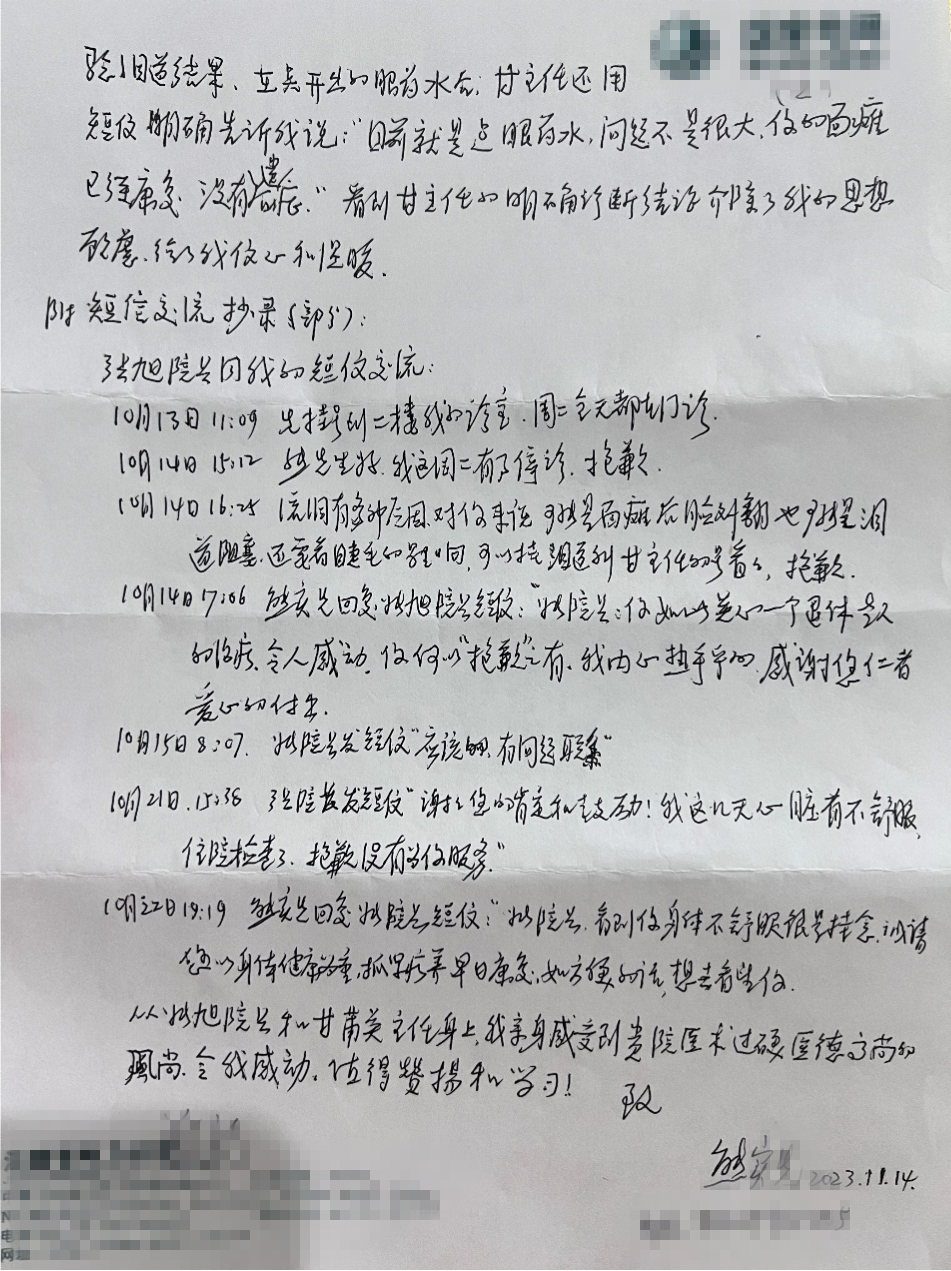 验泪道结果、在其开出的眼药水后，甘主任还用
短信明确告诉我说：“目前就是点眼药水，问题不是很大，你的面瘫
已经康复，没有后遗症。”看到甘主任的明确诊断结论介除了我的思想
顾虑，给了我信心和温暖。
附 短信交流抄录（部分）：
张旭院长同我的短信交流：
10月13日 11:09 先挂号到二楼我的诊室，周二全天都在门诊。
10月14日 15:12 熊先生好，我这周二有事停诊，抱歉。
10月14日 16:25 流泪有多种原因，对你来说可能是面瘫后脸外翻也可能是泪
道阻塞，还要看睫毛的影响，可以挂眼医到甘主任的号看看，抱歉。
10月14日 17:06 熊 回复张旭院长短信：“张院长：你如此关心一个退休老人
的治病，令人感动，你何以“抱歉”之有，我内心热乎乎的，感谢您仁者
爱心的付出。
10月15日 8:07. 张院长发短信“应该的，有问题联系”
10月21日.15:38 张院长发短信“谢谢您的肯定和鼓励！我这几天心脏有不舒服，
住院检查了，抱歉没有为你服务。”
10月22日 19:19 熊 回复张院长短信：“张院长，看到你身体不舒服很是挂念，诚请
您以身体健康为重，抓紧疗养早日康复，如方便的话，想去看望你.
从张旭院长和甘带英主任身上，我亲身感受到贵院医术过硬医德高尚的
风尚，令我感动，值得赞扬和学习！
致
熊 2023.11.14.